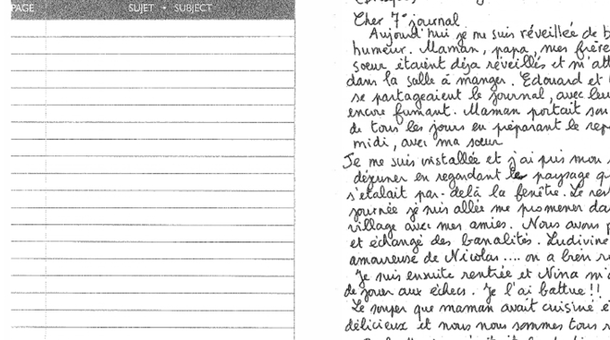 PAGE SUJET • SUBJECT
Cher 7e journal
Aujourd'hui je me suis réveillée de b
humeur. Maman, papa, mes frère
soeur étaient déjà réveillés et m'att
dans la salle à manger. Edouard et
se partageaient le journal, avec leu
encore fumant. Maman portait son
de tous les jours en préparant le rep
midi, avec ma soeur
Je me suis installée et j'ai pris mon
déjeuner en regardant le paysage q
s'étalait par-delà la fenêtre. Le res
journée je suis allée me promener da
village avec mes amies. Nous avons p
et échangé des banalités. Ludivine
amoureuse de Nicolas.... on a bien r
Je suis ensuite rentrée et Nina m'a
de jouer aux échecs. Je l'ai battue !!
Le souper que maman avait cuisiné é
délicieux et nous nous sommes tous